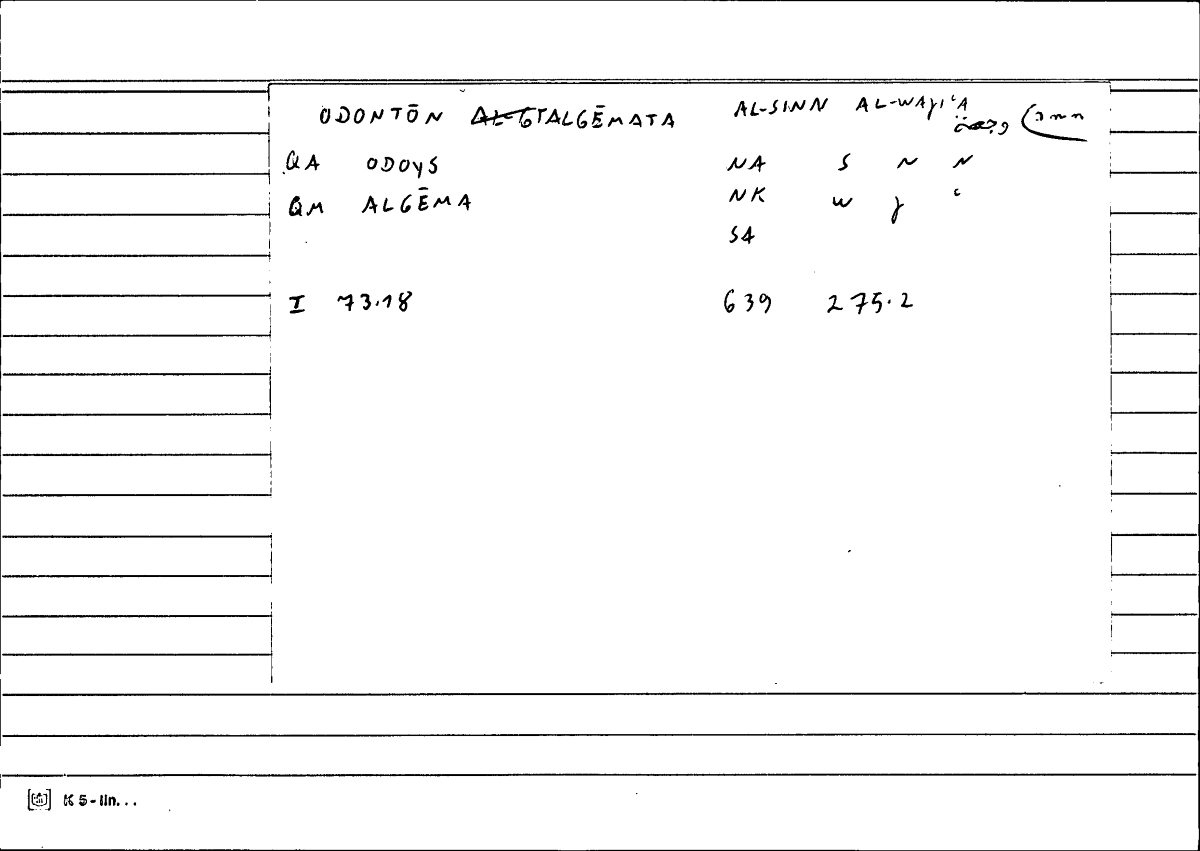 ODONTŌN ALGĒMATA AL-SINN AL-WAJI'A
QA ODOYS NA S N N
QM ALGĒMA NK W J ʿ
SA
I 73.18 639 275.2
K5-lin...